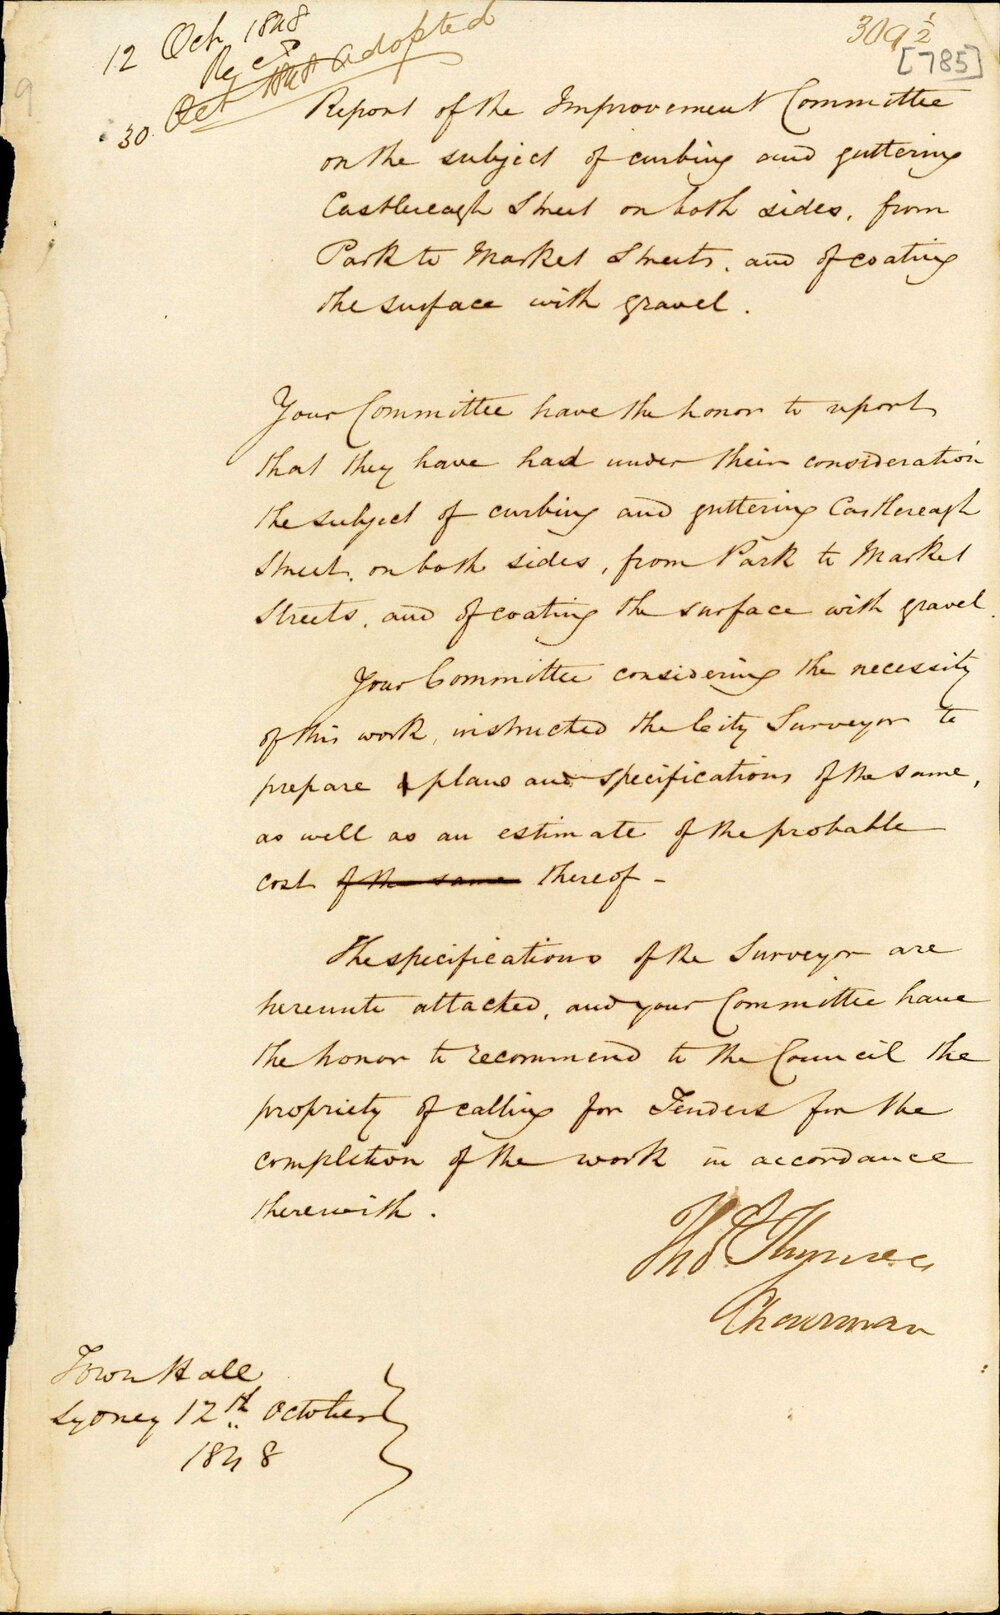 12 Oct 1848
Rec^d
30 Oct 1848 adopted
309 1/2
[785]
9
Report of the Improvement Committee
on the subject of curbing and guttering
Castlereagh Street on both sides, from
Park to Market Streets, and of coating
the surface with gravel.
Your Committee have the honor to report
that they have had under their consideration
the subject of curbing and guttering Castlereagh
Street, on both sides, from Park to Market
Streets, and of coating the surface with gravel.
Your Committee considering the necessity
of this work, instructed the City Surveyor to
prepare plans and specifications of the same,
as well as an estimate of the probable
cost of the same thereof -
The specifications of the Surveyor are
hereunto attached, and your Committee have
the honor to recommend to the Council the
propriety of calling for Tenders for the
completion of the work in accordance
therewith.
Tho^s
Chairman
Town Hall
Sydney 12th October
1848